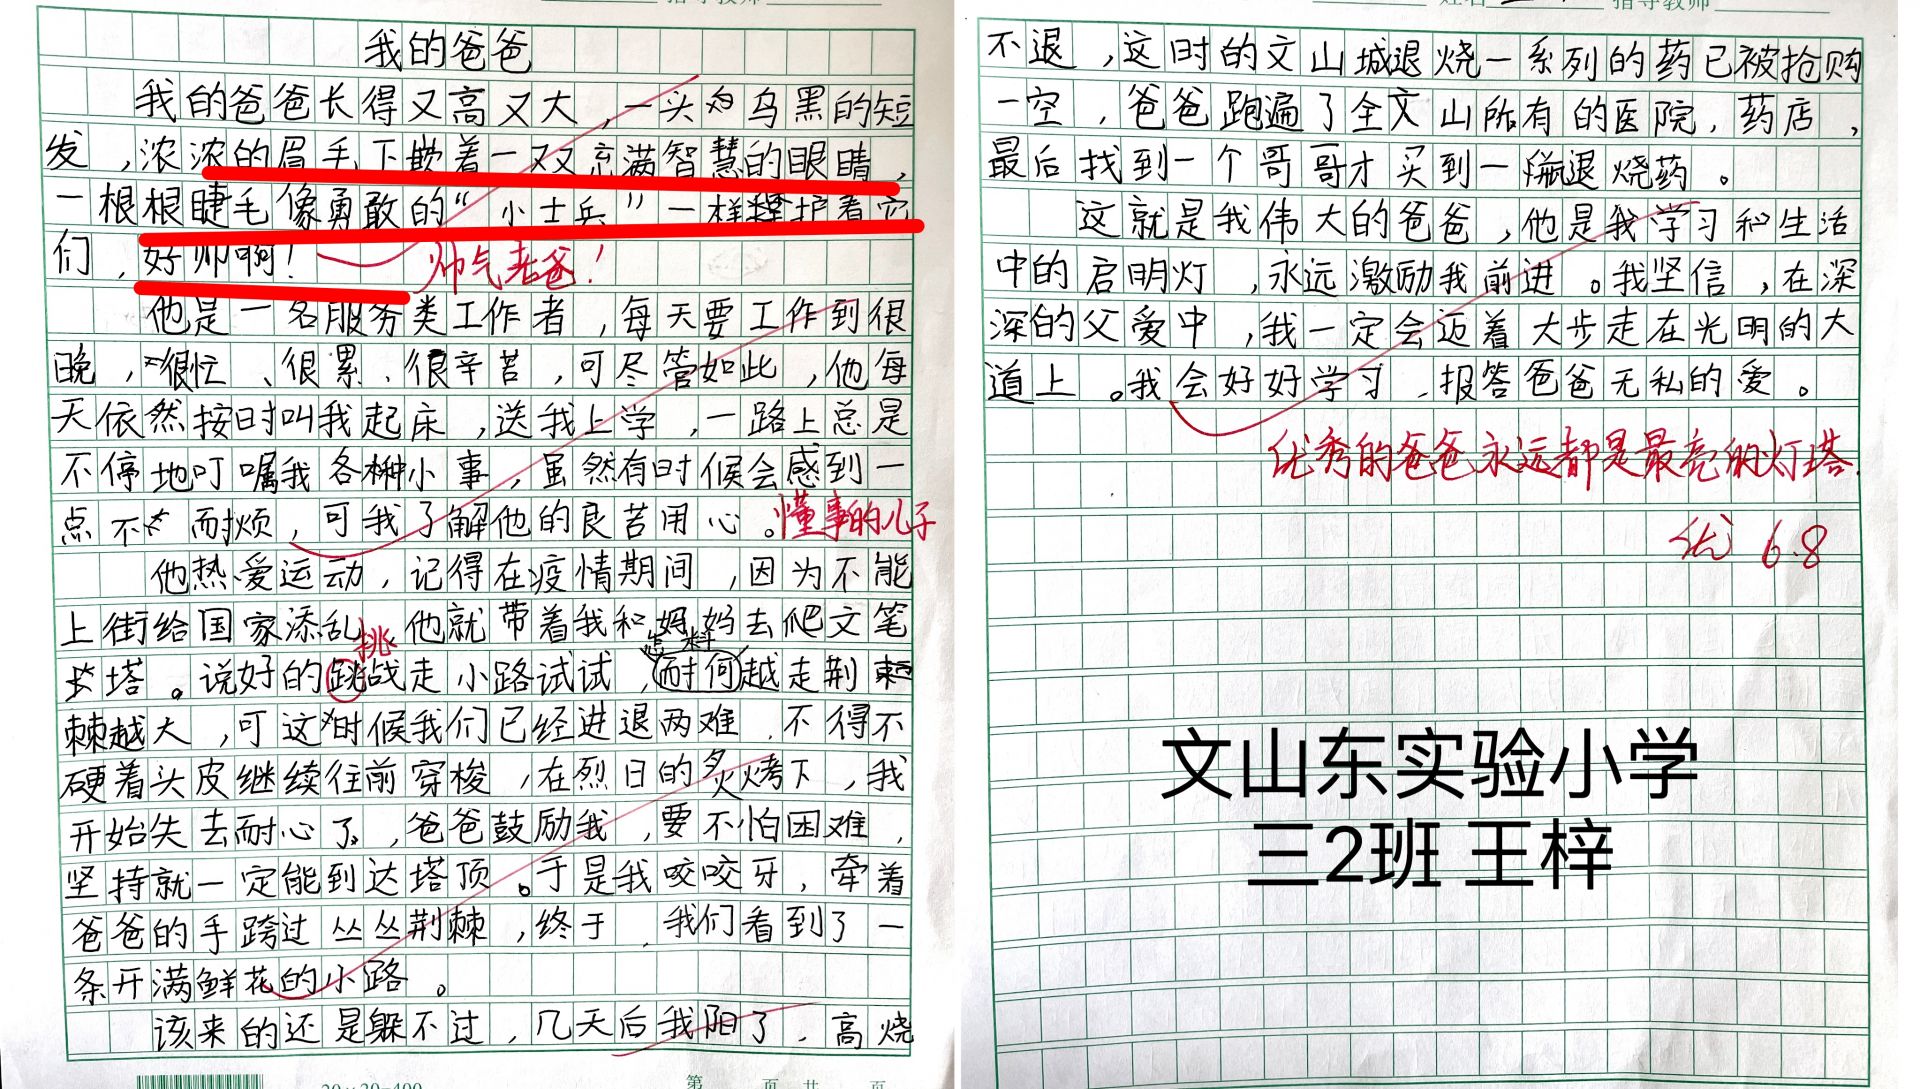 我的爸爸
我的爸爸长得又高又大，一头乌黑的短
发，浓浓的眉毛下嵌着一双充满智慧的眼睛，
一根根睫毛像勇敢的“小士兵”一样守护着它
们，好帅啊！
帅气老爸！
他是一名服务类工作者，每天要工作到很
晚，很忙、很累、很辛苦，可尽管如此，他每
天依然按时叫我起床，送我上学，一路上总是
不停地叮嘱我各种小事，虽然有时候会感到一
点不耐烦，可我了解他的良苦用心。
懂事的儿子
他热爱运动，记得在疫情期间，因为不能
上街给国家添乱，他就带着我和妈妈去爬文笔
塔。说好的跳战走小路试试，耐何越走荆
挑
怎料
棘越大，可这时候我们已经进退两难，不得不
硬着头皮继续往前穿梭，在烈日的炙烤下，我
开始失去耐心了，爸爸鼓励我，要不怕困难，
坚持就一定能到达塔顶。于是我咬咬牙，牵着
爸爸的手跨过丛丛荆棘，终于，我们看到了一
条开满鲜花的小路。
该来的还是躲不过，几天后我阳了，高烧
20×20=400
第 页 共 页
指导教师
不退，这时的文山城退烧一系列的药已被抢购
一空，爸爸跑遍了全文山所有的医院，药店，
最后找到一个哥哥才买到一瓶退烧药。
这就是我伟大的爸爸，他是我学习和生活
中的启明灯，永远激励我前进。我坚信，在深
深的父爱中，我一定会迈着大步走在光明的大
道上。我会好好学习，报答爸爸无私的爱。
优秀的爸爸永远都是最亮的灯塔.
优 6.8
文山东实验小学
三2班 王梓